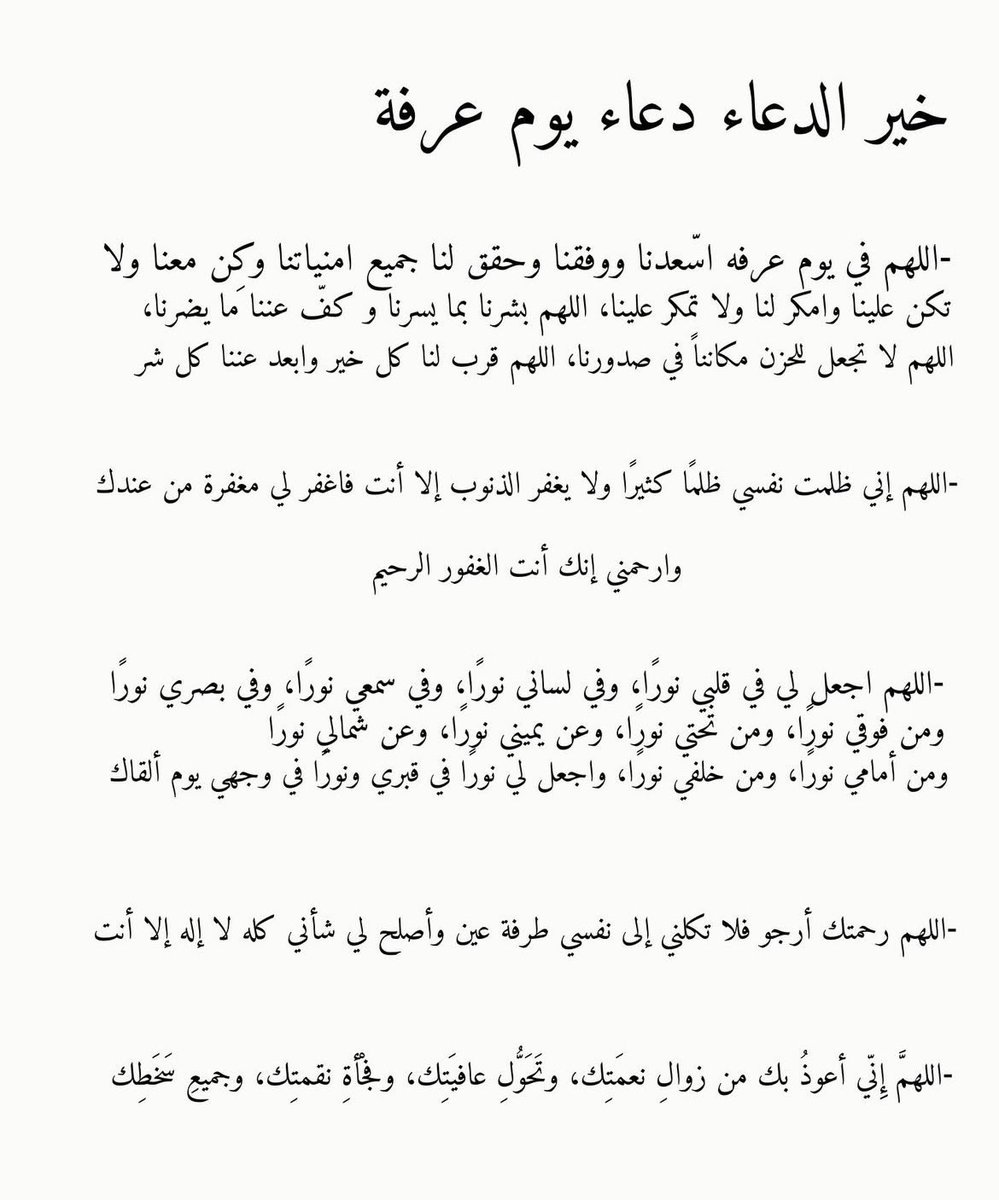 خير الدعاء دعاء يوم عرفة
-اللهم في يوم عرفه اسّعدنا ووفقنا وحقق لنا جميع امنياتنا وكن معنا ولا
تكن علينا وامكر لنا ولا تمكر علينا، اللهم بشرنا بما يسرنا و كفّ عننا مَا يضرنا،
اللهم لا تجعل للحزن مكانناً في صدورنا، اللهم قرب لنا كل خير وابعد عننا كل شر
-اللهم إني ظلمت نفسي ظلمًا كثيرًا ولا يغفر الذنوب إلا أنت فاغفر لي مغفرة من عندك
وارحمني إنك أنت الغفور الرحيم
-اللهم اجعل لي في قلبي نورًا، وفي لساني نورًا، وفي سمعي نورًا، وفي بصري نورًا
ومن فوقي نورًا، ومن تحتي نورًا، وعن يميني نورًا، وعن شمالي نورًا
ومن أمامي نورًا، ومن خلفي نورًا، واجعل لي نورًا في قبري ونورًا في وجهي يوم ألقاك
-اللهم رحمتك أرجو فلا تكلني إلى نفسي طرفة عين وأصلح لي شأني كله لا إله إلا أنت
-اللهمَّ إِنّي أعوذُ بك من زوالِ نعمَتِك، وتَحَوُّلِ عافيَتِك، وفجْأةِ نقمتِك، وجميعِ سَخَطِك